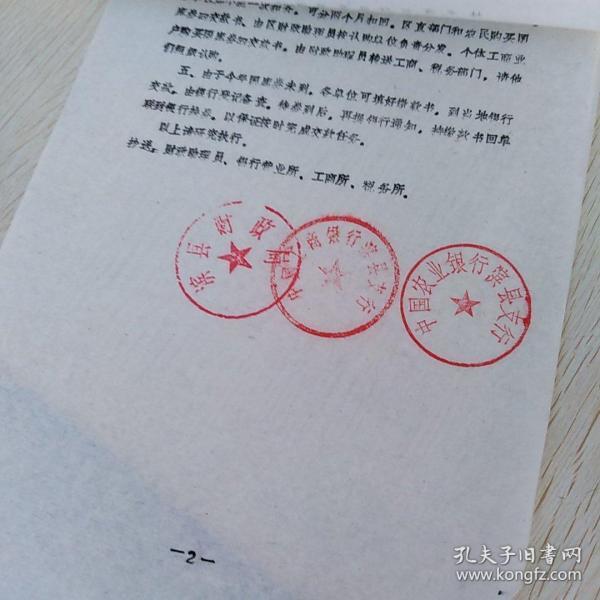 可分两个月扣回。区直部门和农民购买国
库券的交款书。由区财政助理员按认购单位负责分发。个体工商业
户购买国库券的交款书。由财政助理员转送工商、税务部门,请他
们组织认购。
五、由于今年国库券未到。各单位可填好缴款书。到当地银行
交款。由银行登记备查。待券到后,再据银行通知,持缴款书回单
联到银行换券。以保证按时完成交款任务。
以上请研究执行。
抄送:财政助理员、银行营业所、工商所、税务所。
滨县财政局
中国 银行滨县支行
中国农业银行滨县支行
—2—
孔夫子旧书网
www.kongfz.com